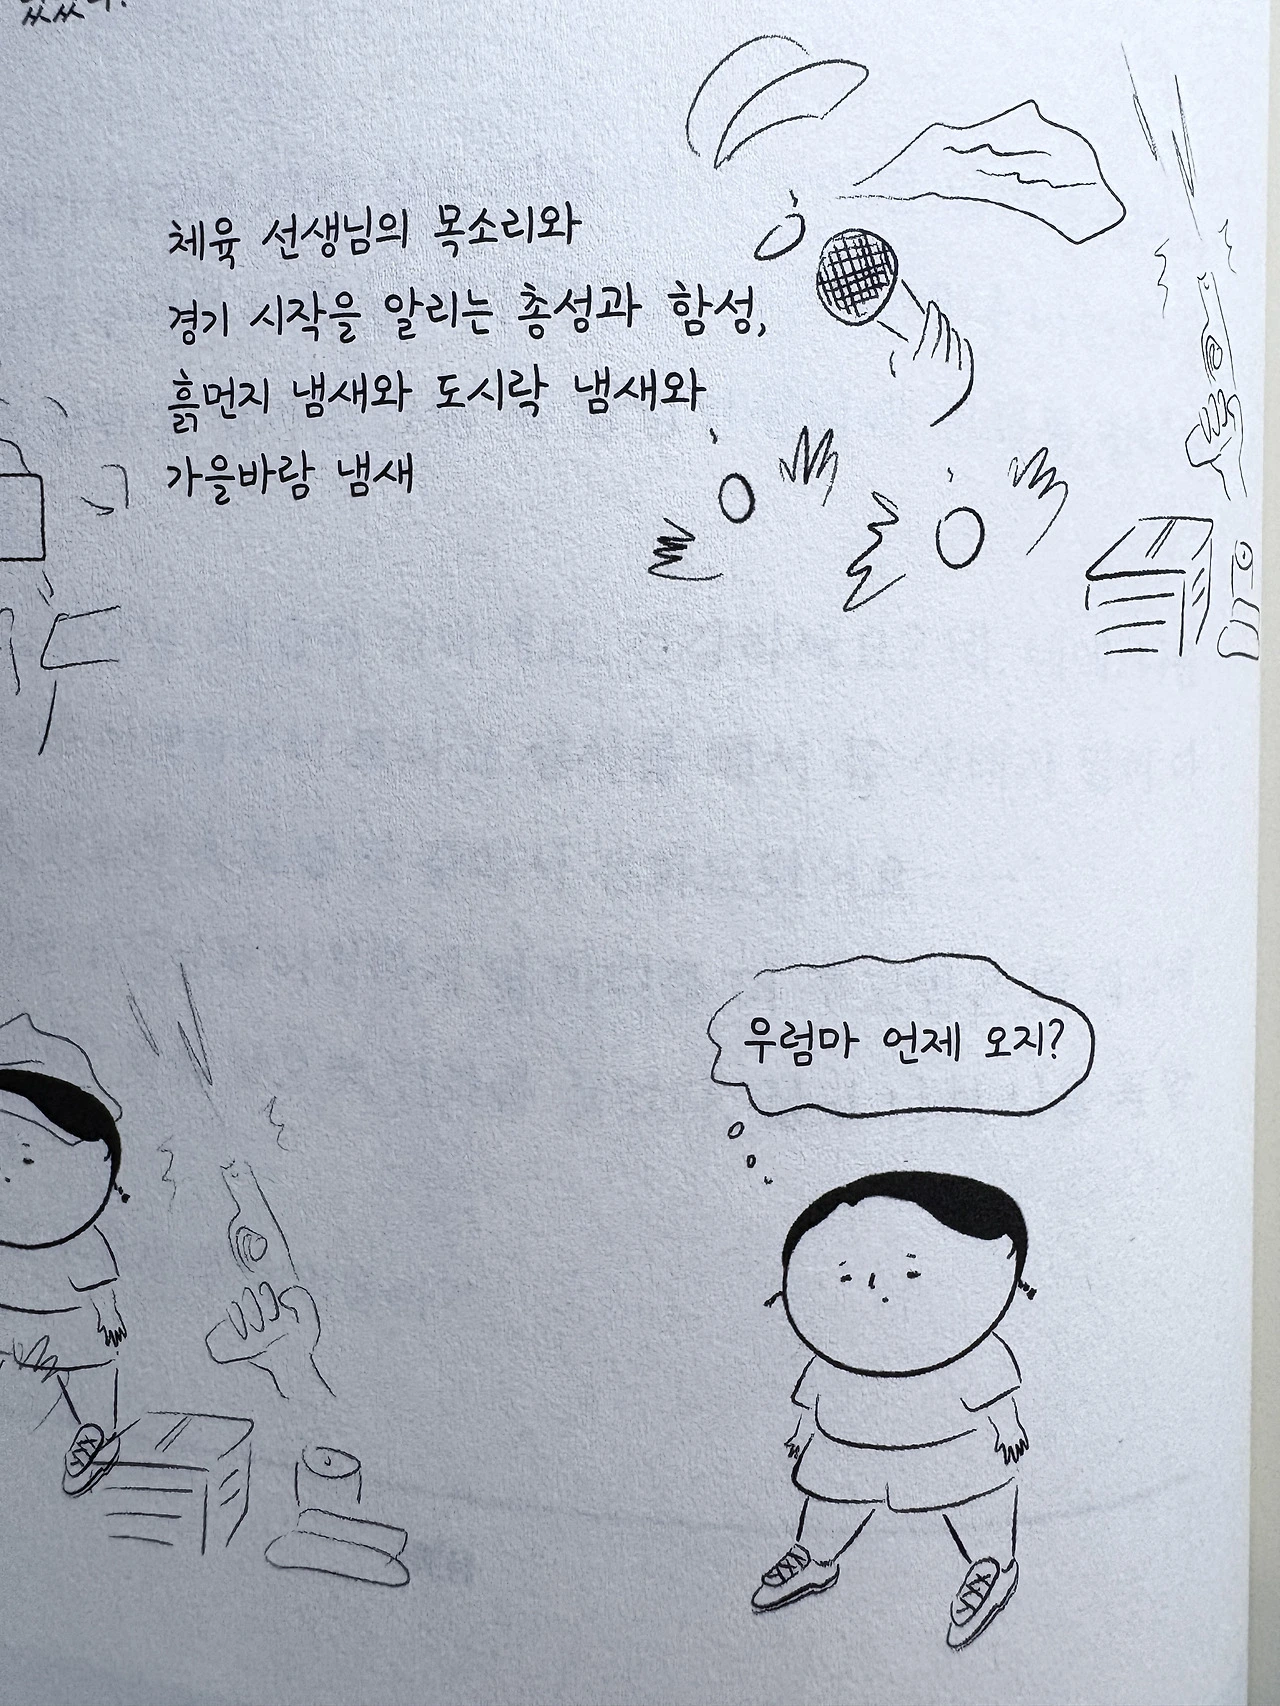 체육 선생님의 목소리와
경기 시작을 알리는 총성과 함성,
흙먼지 냄새와 도시락 냄새와
가을바람 냄새
우럼마 언제 오지?